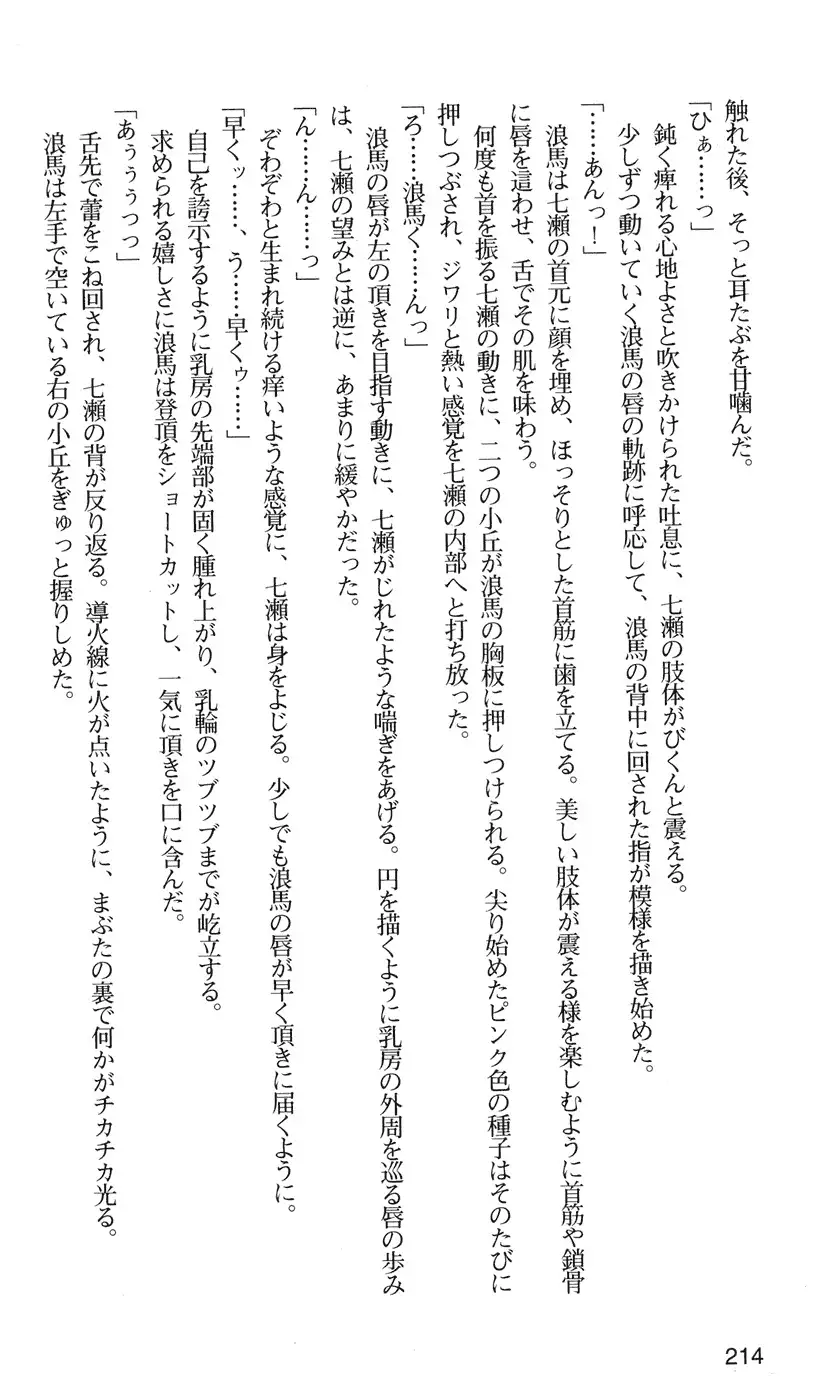 触れた後、そっと耳たぶを甘噛んだ。
「ひぁ……っ」
鈍く痺れる心地よさと吹きかけられた吐息に、七瀬の肢体がびくんと震える。
少しずつ動いていく浪馬の唇の軌跡に呼応して、浪馬の背中に回された指が模様を描き始めた。
「……あんっ！」
浪馬は七瀬の首元に顔を埋め、ほっそりとした首筋に歯を立てる。美しい肢体が震える様を楽しむように首筋や鎖骨
に唇を這わせ、舌でその肌を味わう。
何度も首を振る七瀬の動きに、二つの小丘が浪馬の胸板に押しつけられる。尖り始めたピンク色の種子はそのたびに
押しつぶされ、ジワリと熱い感覚を七瀬の内部へと打ち放った。
「ろ……浪馬く……んっ」
浪馬の唇が左の頂きを目指す動きに、七瀬がじれたような喘ぎをあげる。円を描くように乳房の外周を巡る唇の歩み
は、七瀬の望みとは逆に、あまりに緩やかだった。
「ん……ん……っ」
ぞわぞわと生まれ続ける痒いような感覚に、七瀬は身をよじる。少しでも浪馬の唇が早く頂きに届くように。
「早くッ……、う……早くゥ……」
自己を誇示するように乳房の先端部が固く腫れ上がり、乳輪のツブツブまでが屹立する。
求められる嬉しさに浪馬は登頂をショートカットし、一気に頂きを口に含んだ。
「あぅぅぅっっ」
舌先で蕾をこね回され、七瀬の背が反り返る。導火線に火が点いたように、まぶたの裏で何かがチカチカ光る。
浪馬は左手で空いている右の小丘をぎゅっと握りしめた。
214